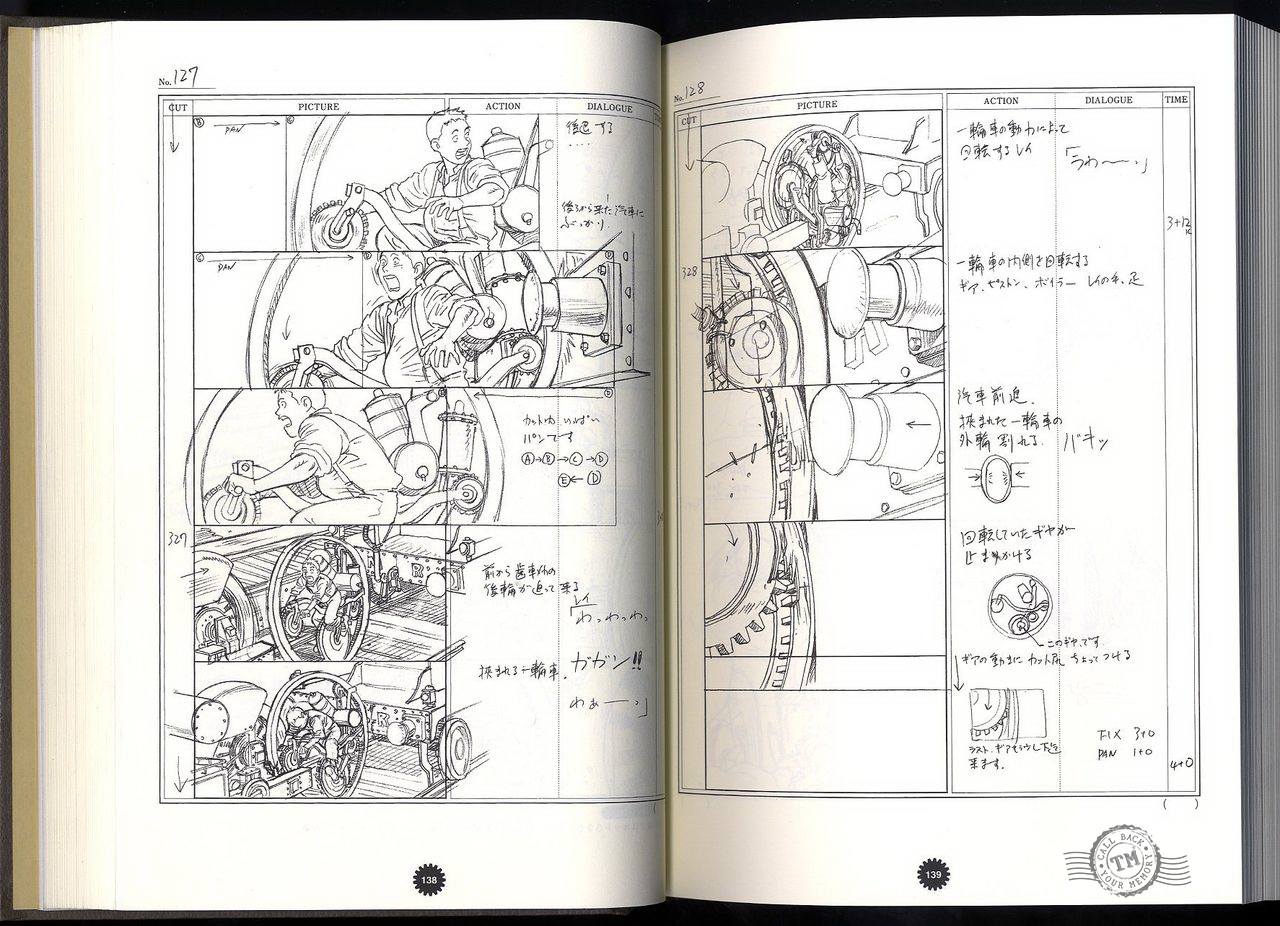 No. 127
CUT PICTURE ACTION DIALOGUE
B PAN C
後退する
‥‥
後ろから来た汽車に
ぶつかり
C PAN D
D
カット内いっぱい
パンです
A→B→C→D
E←D
327
R
前から歯車付の
後輪が迫って来る
レイ
「わっわっわっ
挟まれる一輪車。
ガガン!!
わぁーっ」
R
138
No. 128
CUT PICTURE ACTION DIALOGUE TIME
一輪車の動力によって
回転するレイ
「うわ〜〜っ」
3+12
328
一輪車の内側を回転する
ギア、ピストン、ボイラー レイの手、足
汽車前進。
挟まれた一輪車の
外輪割れる。
バキッ
回転していたギヤが
止まりかける
このギヤです
ギアの動きに カット尻 ちょってつける
来ます。
FIX 3+0
PAN 1+0
4+0
( )
139
CALL BACK
TM
YOUR MEMORY